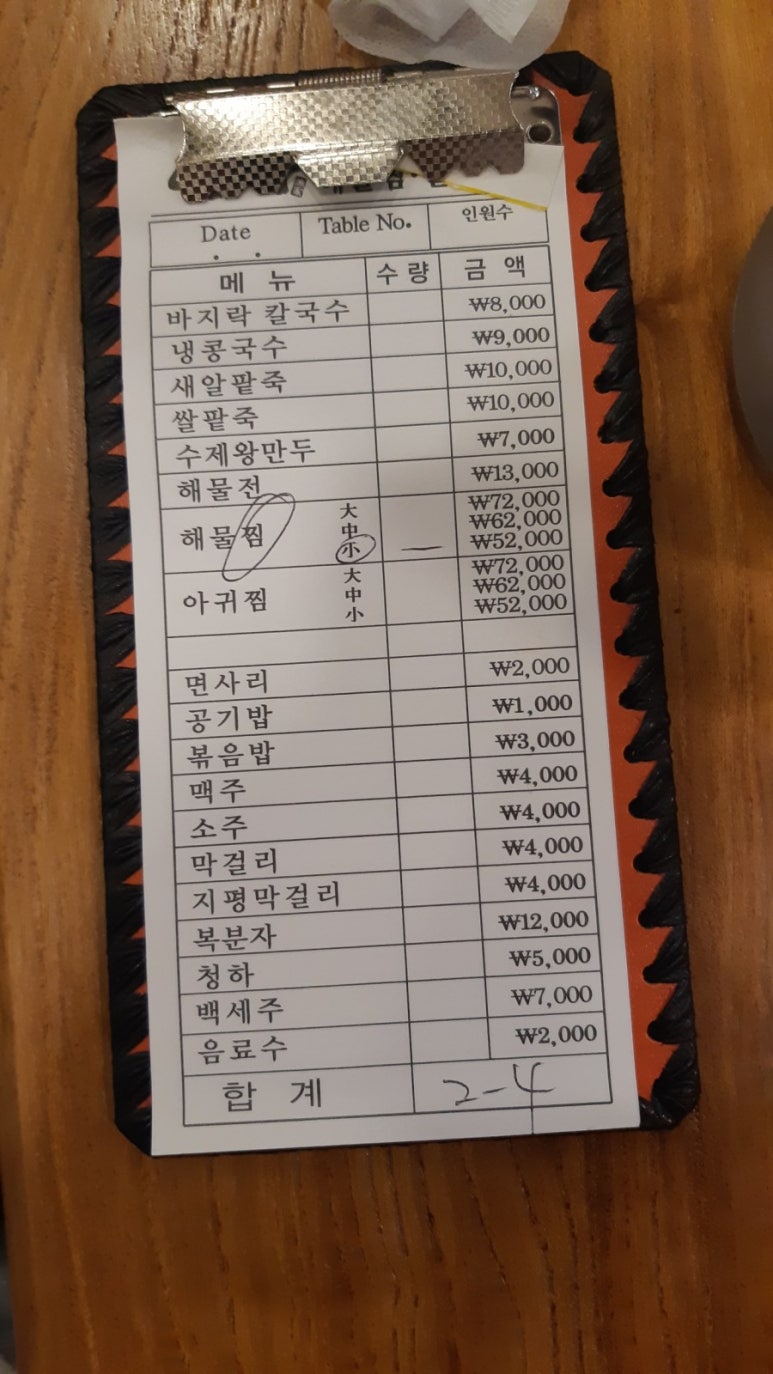 Date . . Table No. 인원수
메 뉴 수 량 금 액
바지락 칼국수 ₩8,000
냉콩국수 ₩9,000
새알팥죽 ₩10,000
쌀팥죽 ₩10,000
수제왕만두 ₩7,000
해물전 ₩13,000
해물찜 大 ₩72,000
中 ₩62,000
小 — ₩52,000
아귀찜 大 ₩72,000
中 ₩62,000
小 ₩52,000
면사리 ₩2,000
공기밥 ₩1,000
볶음밥 ₩3,000
맥주 ₩4,000
소주 ₩4,000
막걸리 ₩4,000
지평막걸리 ₩4,000
복분자 ₩12,000
청하 ₩5,000
백세주 ₩7,000
음료수 ₩2,000
합 계 2-4